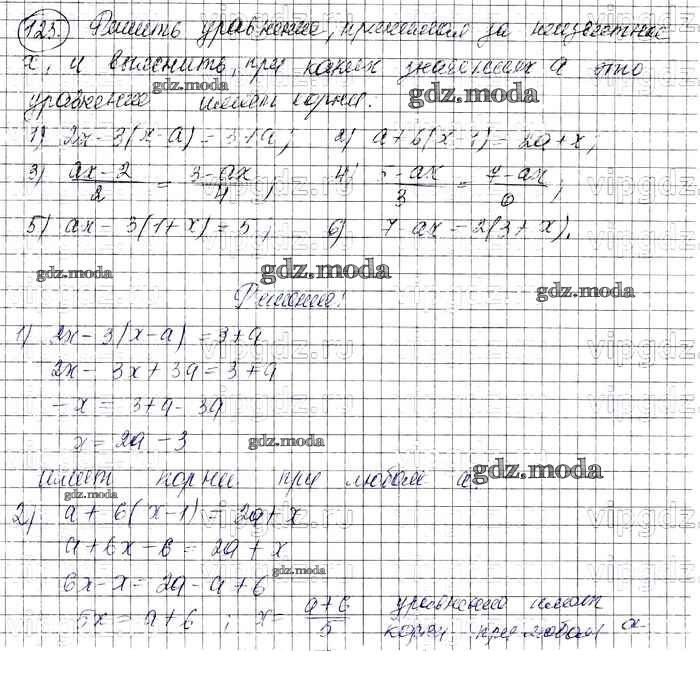 123. Решить уравнение, принимая за неизвестное
x, и выяснить, при каких значениях a это
gdz.moda
уравнение имеет корни.
gdz.moda
1) 2x - 3(x - a) = 3 + a; 2) a + 6(x - 1) = 2a + x;
3) (ax - 2)/2 = (3 - ax)/4; 4) (5 - ax)/3 = (7 - ax)/6;
vipgdz.ru
5) ax - 3(1 + x) = 5; 6) 7 - ax = 2(3 + x).
gdz.moda
gdz.moda
gdz.moda
Решение:
1) 2x - 3(x - a) = 3 + a
vipgdz.ru
2x - 3x + 3a = 3 + a
-x = 3 + a - 3a
x = 2a - 3
gdz.moda
имеет корни при любом a
gdz.moda
gdz.moda
2) a + 6(x - 1) = 2a + x
vipgdz.ru
a + 6x - 6 = 2a + x
gdz.moda
6x - x = 2a - a + 6
5x = a + 6; x = (a + 6)/5 уравнение имеет
корни при любом a